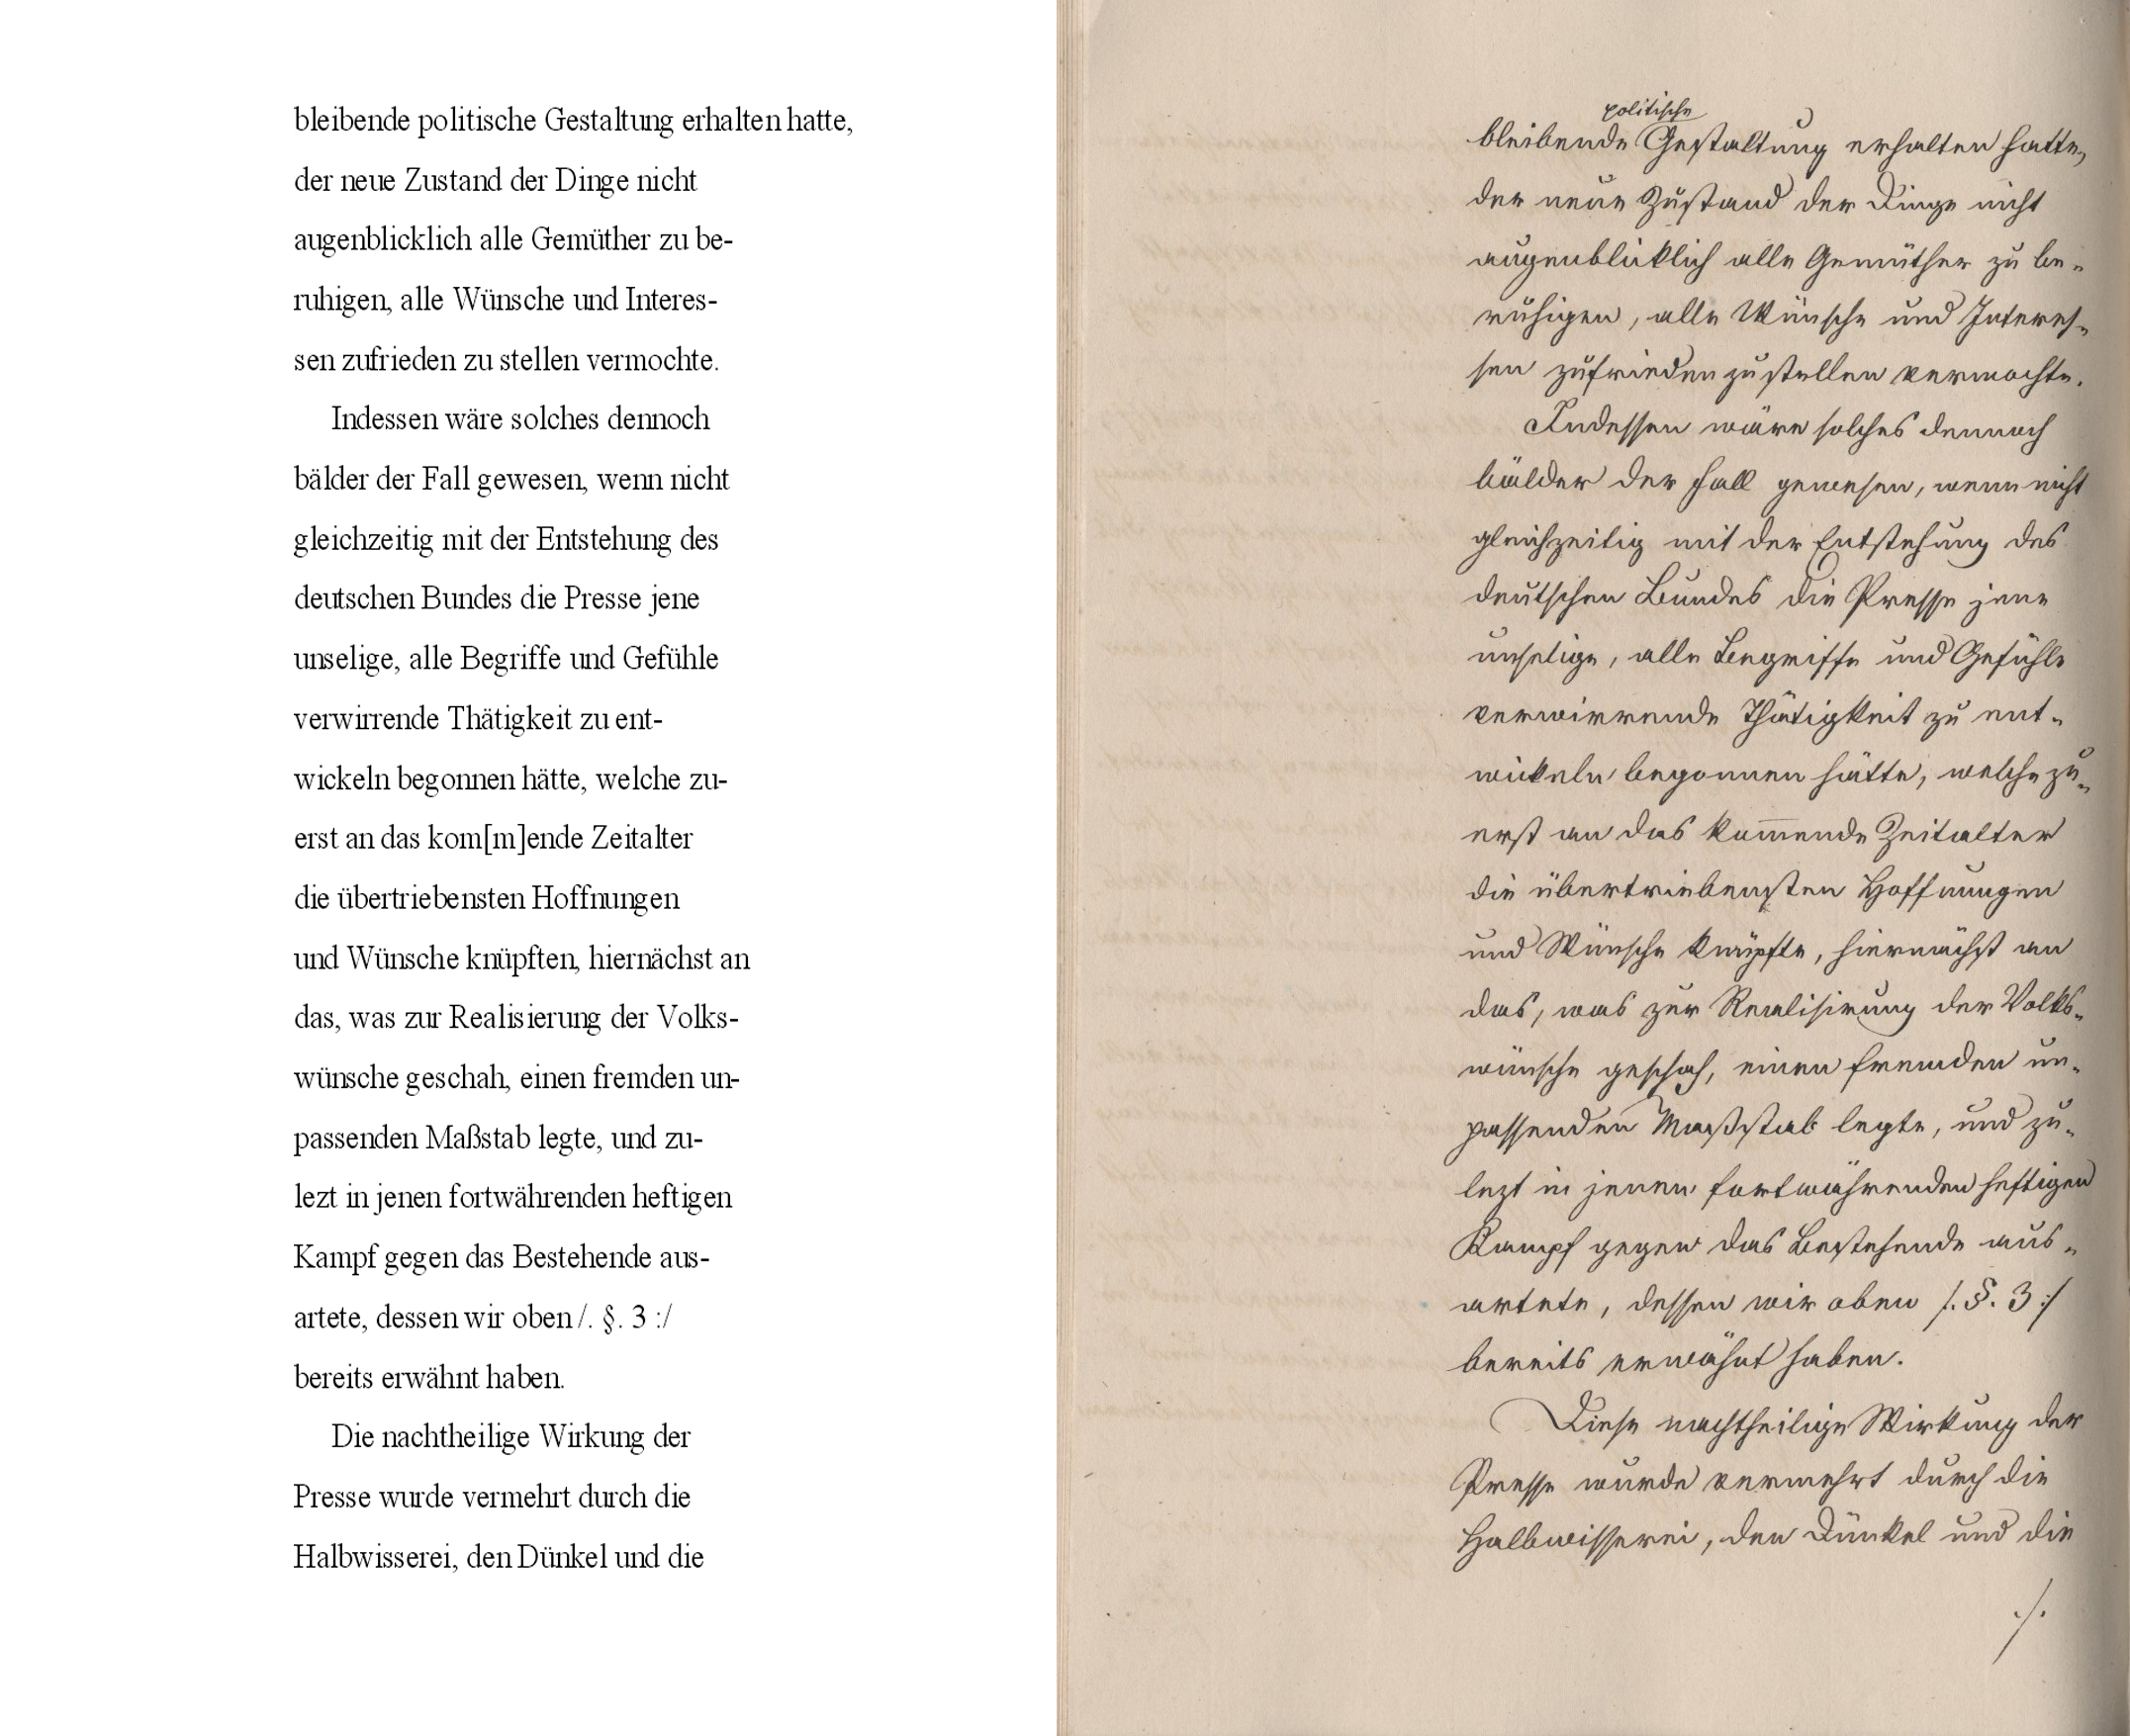 bleibende politische Gestaltung erhalten hatte,
der neue Zustand der Dinge nicht
augenblicklich alle Gemüther zu be-
ruhigen, alle Wünsche und Interes-
sen zufrieden zu stellen vermochte.
Indessen wäre solches dennoch
bälder der Fall gewesen, wenn nicht
gleichzeitig mit der Entstehung des
deutschen Bundes die Presse jene
unselige, alle Begriffe und Gefühle
verwirrende Thätigkeit zu ent-
wickeln begonnen hätte, welche zu-
erst an das kom[m]ende Zeitalter
die übertriebensten Hoffnungen
und Wünsche knüpften, hiernächst an
das, was zur Realisierung der Volks-
wünsche geschah, einen fremden un-
passenden Maßstab legte, und zu-
lezt in jenen fortwährenden heftigen
Kampf gegen das Bestehende aus-
artete, dessen wir oben /. §. 3 :/
bereits erwähnt haben.
Die nachtheilige Wirkung der
Presse wurde vermehrt durch die
Halbwisserei, den Dünkel und die
politische
bleibende Gestaltung erhalten hatte,
der neue Zustand der Dinge nicht
augenblicklich alle Gemüther zu be-
ruhigen, alle Wünsche und Interes-
sen zufrieden zu stellen vermochte.
Indessen wäre solches dennoch
bälder der Fall gewesen, wenn nicht
gleichzeitig mit der Entstehung des
deutschen Bundes die Presse jene
unselige, alle Begriffe und Gefühle
verwirrende Thätigkeit zu ent-
wickeln begonnen hätte, welche zu-
erst an das kom̅ende Zeitalter
die übertriebensten Hoffnungen
und Wünsche knüpfte, hiernächst an
das, was zur Realisirung der Volks-
wünsche geschah, einen fremden un-
passenden Maßstab legte, und zu-
lezt in jenen fortwährenden heftigen
Kampf gegen das Bestehende aus-
artete, dessen wir oben /. §. 3 :/
bereits erwähnt haben.
Diese nachtheilige Wirkung der
Presse wurde vermehrt durch die
Halbwisserei, den Dünkel und die
./.